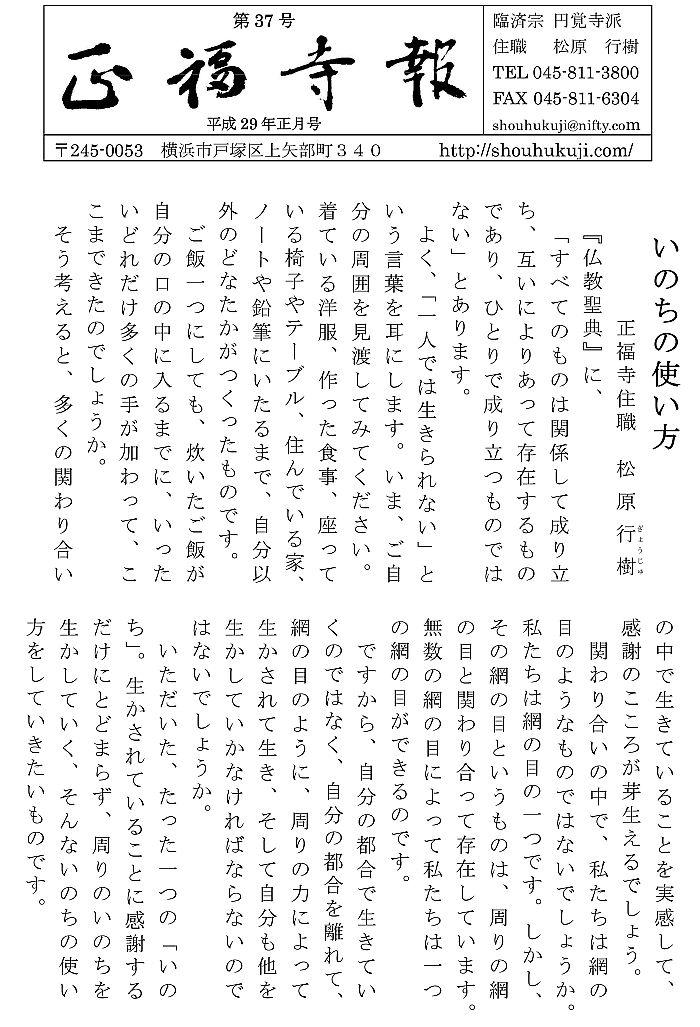 第37号
正福寺報
平成29年正月号
臨済宗 円覚寺派
住職 松原 行樹
TEL 045-811-3800
FAX 045-811-6304
shouhukuji@nifty.com
〒245-0053 横浜市戸塚区上矢部町340 http://shouhukuji.com/
いのちの使い方
正福寺住職 松原 行樹
ぎょうじゅ
『仏教聖典』に、
「すべてのものは関係して成り立
ち、互いによりあって存在するもの
であり、ひとりで成り立つものでは
ない」とあります。
よく、「一人では生きられない」と
いう言葉を耳にします。いま、ご自
分の周囲を見渡してみてください。
着ている洋服、作った食事、座って
いる椅子やテーブル、住んでいる家、
ノートや鉛筆にいたるまで、自分以
外のどなたかがつくったものです。
ご飯一つにしても、炊いたご飯が
自分の口の中に入るまでに、いった
いどれだけ多くの手が加わって、こ
こまできたのでしょうか。
そう考えると、多くの関わり合い
の中で生きていることを実感して、
感謝のこころが芽生えるでしょう。
関わり合いの中で、私たちは網の
目のようなものではないでしょうか。
私たちは網の目の一つです。しかし、
その網の目というものは、周りの網
の目と関わり合って存在しています。
無数の網の目によって私たちは一つ
の網の目ができるのです。
ですから、自分の都合で生きてい
くのではなく、自分の都合を離れて、
網の目のように、周りの力によって
生かされて生き、そして自分も他を
生かしていかなければならないので
はないでしょうか。
いただいた、たった一つの「いの
ち」。生かされていることに感謝する
だけにとどまらず、周りのいのちを
生かしていく、そんないのちの使い
方をしていきたいものです。